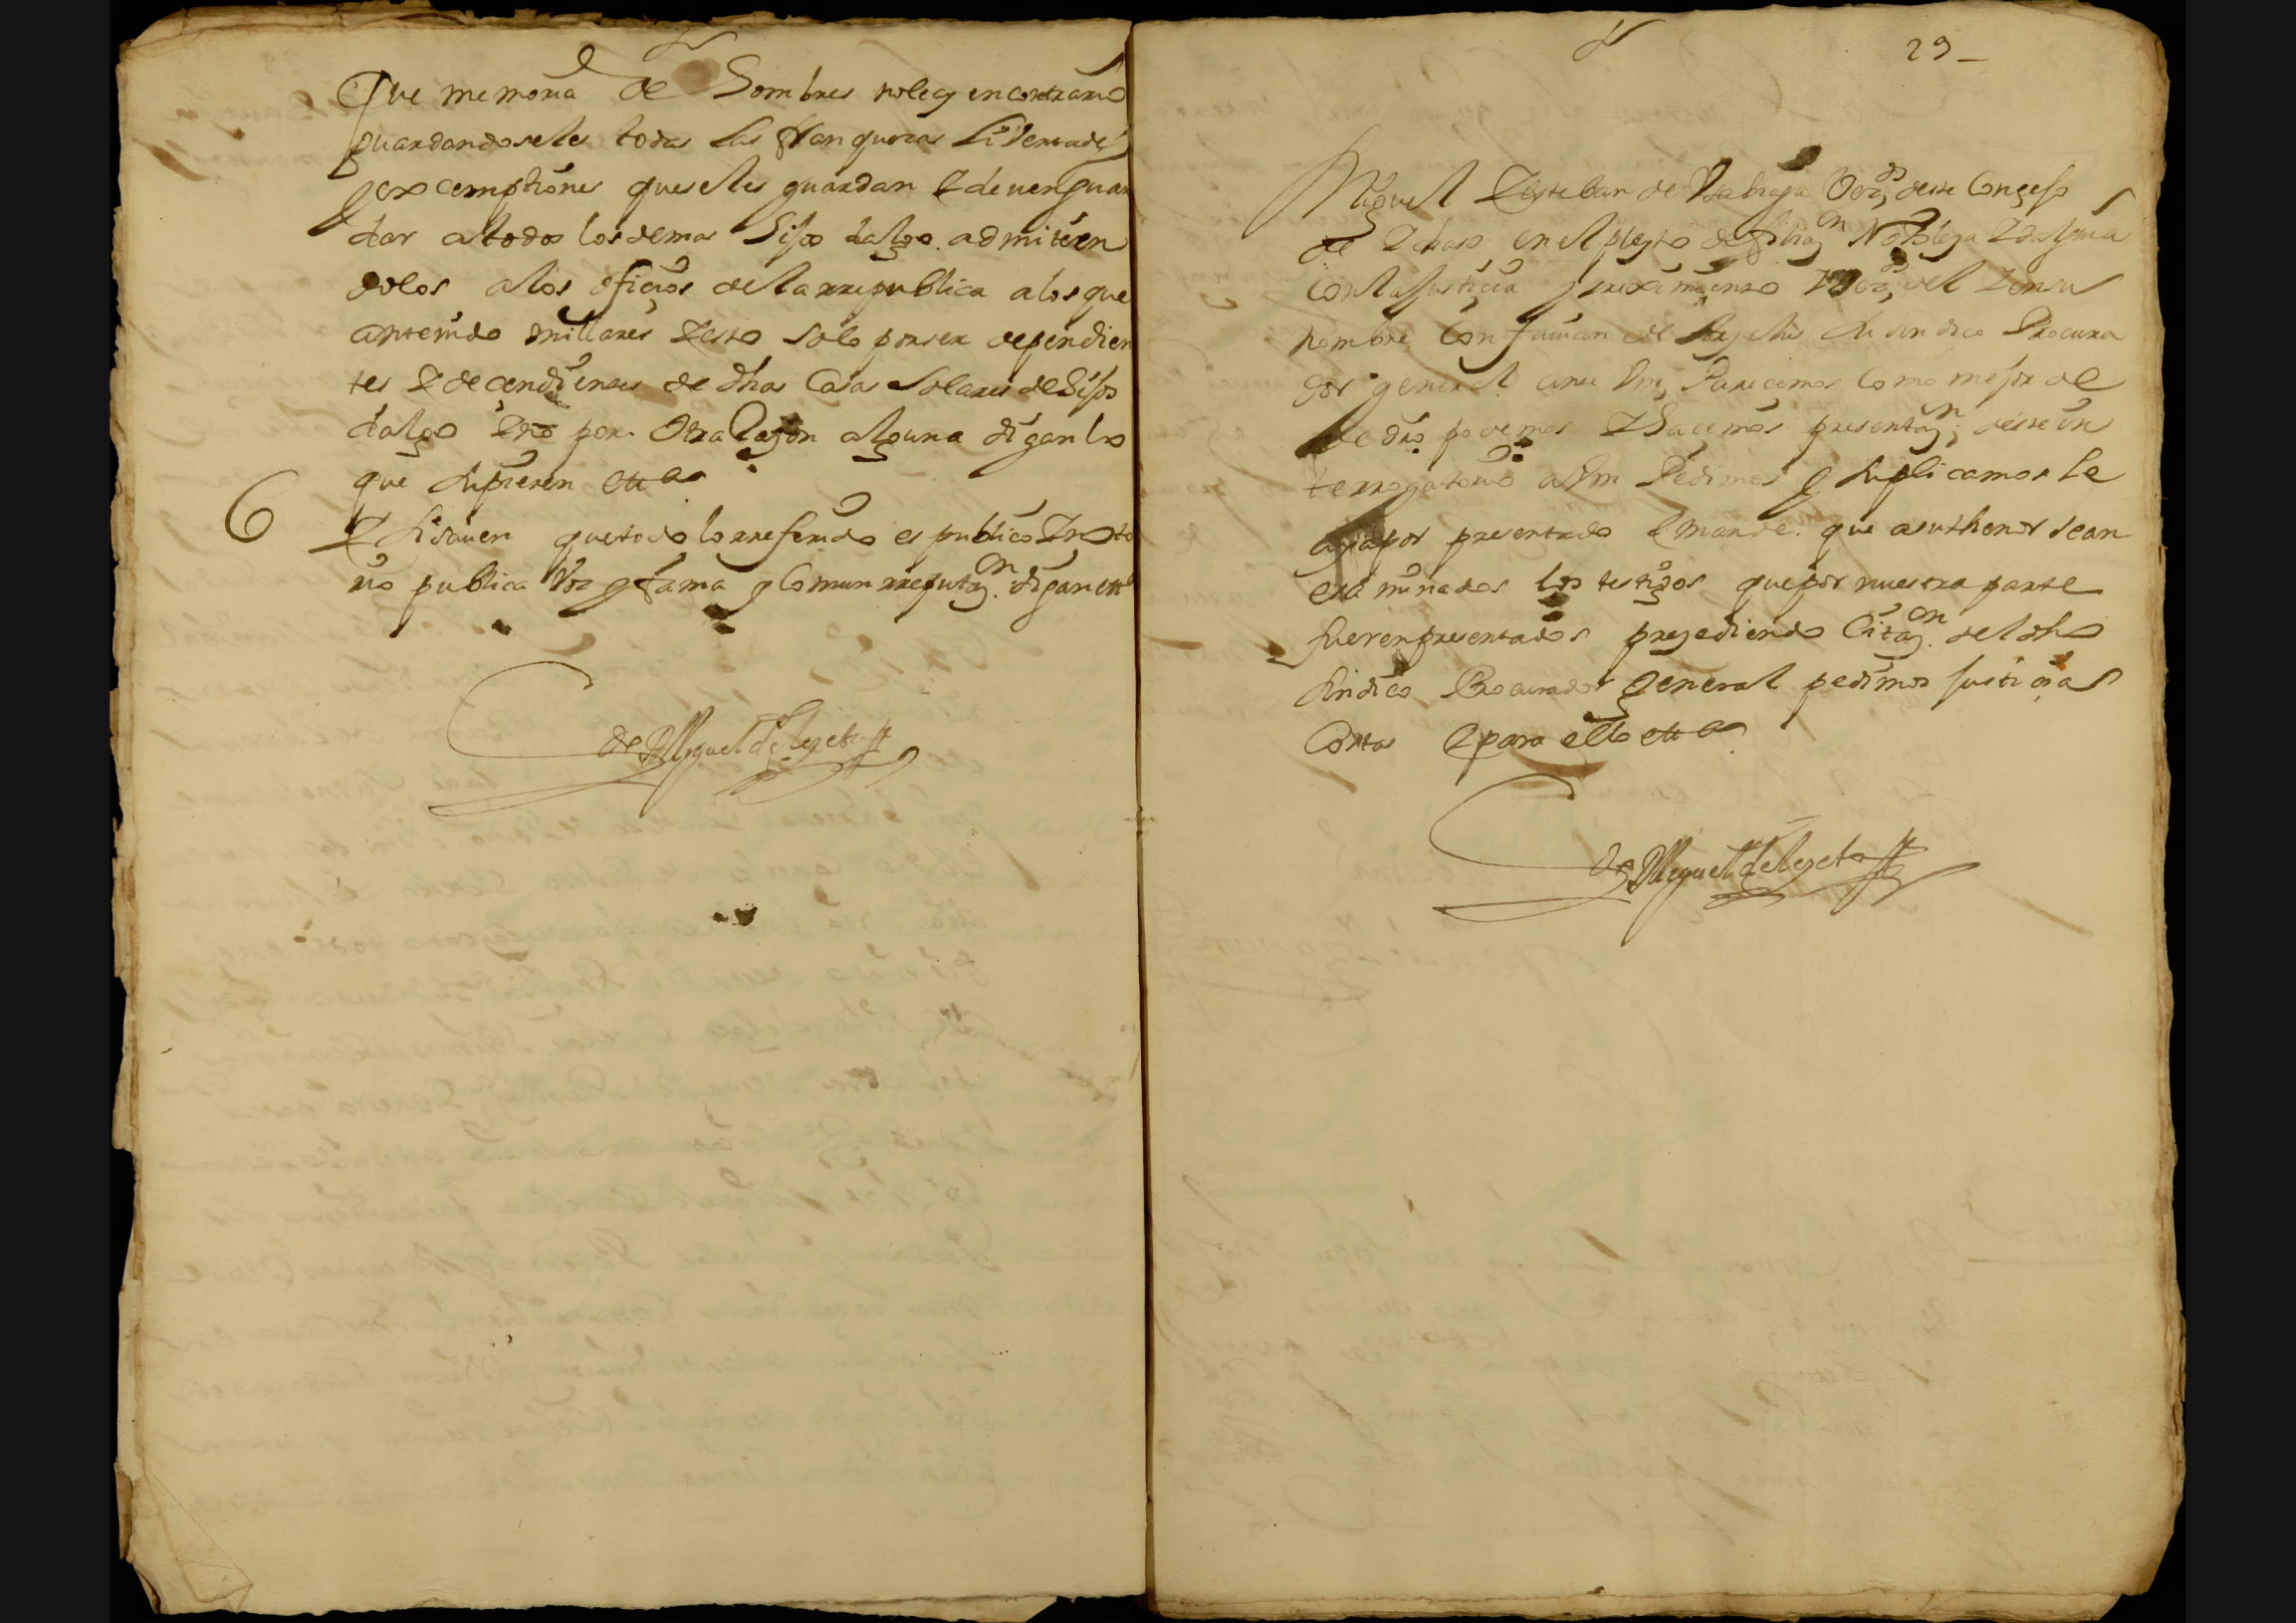 Que memoria de hombres no ley en contrario
guardandoseles todas las franquezas Livertades
y excemptiones que se les guardan E deven guar
dar a todos los demas hijos dalgo. admitien
dolos a los ofiçios de la rrepublica a los que
an tenido millares E esto solo por ser dependien
tes E decendientes de dhas Casas Solares de hijos
dalgo E no por Otra Raçon alguna digan lo
que supieren etta
6 E si saven que todo lo rreferido es publico E noto
rio publica Voz y fama y Comun rreputaçn. digan etta
Dr Miguel de Legeta
29
Miguel E esteban de Vezos deste Conçejo
de en el pleyto de filiaçn Nobleza E dalguia
Con la Justiçia y reximiento E Vezos del E en su
nombre Con su sindico Procura
dor general ante Vm, Pareçemos Como mejor de
de dro. podemos E haçemos presentaçn, deste in
terrogatorio a Vm Pedimos y suplicamos le
aya por presentado E mande. que a su thenor sean
exsaminados los testigos que por nuestra parte
fueren presentados preçediendo Citaçn. del dho
sindico Procurador General pedimos Justiçia
Costas E para ello etta
Dr Miguel de Legeta